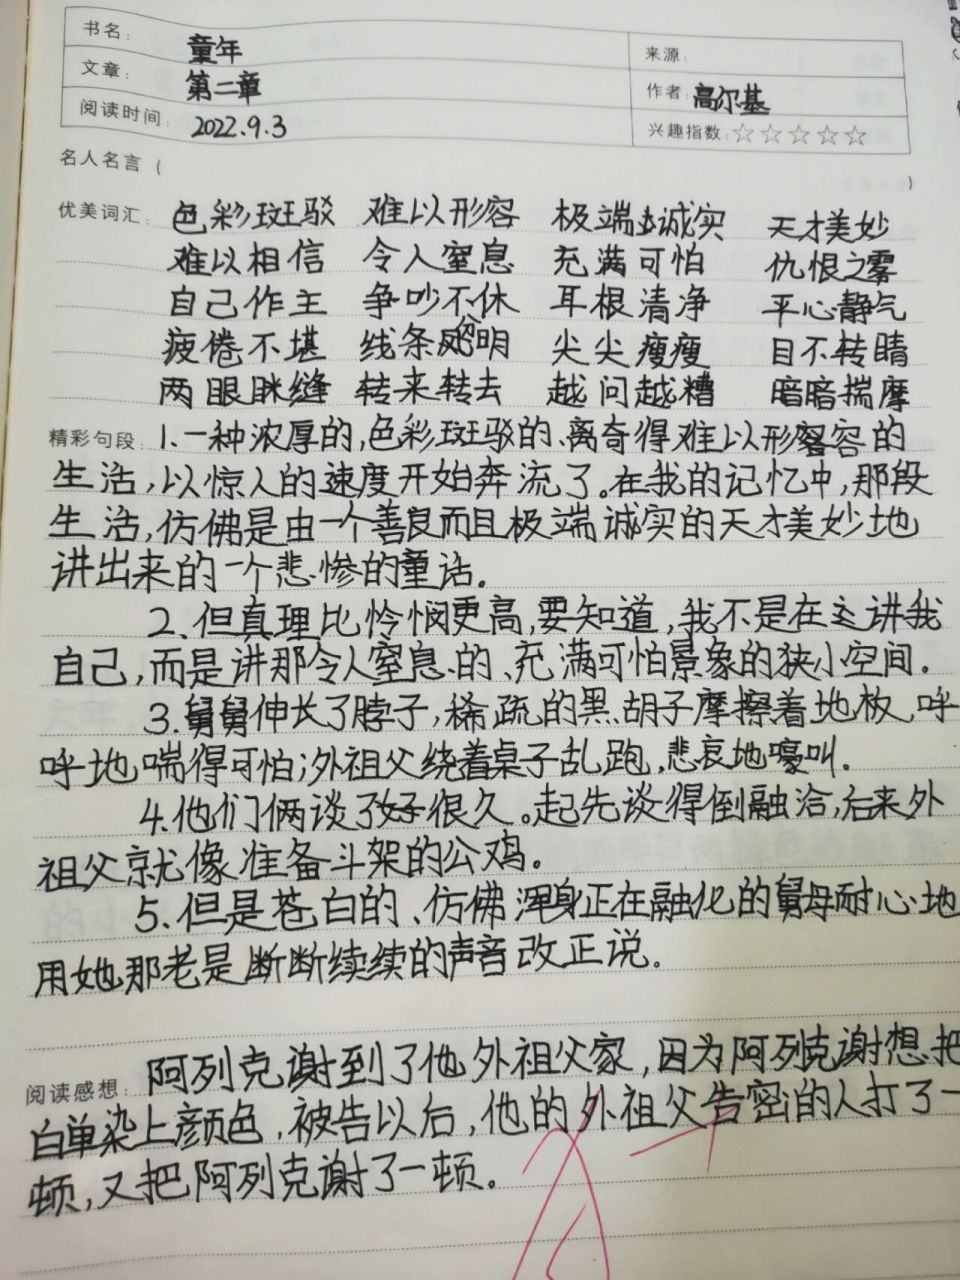 书名： 童年
来源：
文章： 第二章
作者： 高尔基
阅读时间： 2022.9.3
兴趣指数：☆☆☆☆☆
名人名言（ ）
优美词汇： 色彩斑驳 难以形容 极端诚实 天才美妙
难以相信 令人窒息 充满可怕 仇恨之雾
自己作主 争吵不休 耳根清净 平心静气
疲倦不堪 线条分明 尖尖瘦瘦 目不转睛
两眼眯缝 转来转去 越问越糟 暗暗揣摩
精彩句段： 1.一种浓厚的,色彩斑驳的、离奇得难以形容的
生活,以惊人的速度开始奔流了。在我的记忆中,那段
生活,仿佛是由一个善良而且极端诚实的天才美妙地
讲出来的一个悲惨的童话。
2、但真理比怜悯更高,要知道,我不是在这讲我
自己,而是讲那令人窒息的、充满可怕景象的狭小空间。
3.舅舅伸长了脖子,稀疏的黑胡子摩擦着地板,呼
呼地喘得可怕;外祖父绕着桌子乱跑,悲哀地嚎叫.
4.他们俩谈了好很久。起先谈得倒融洽,后来外
祖父就像准备斗架的公鸡。
5、但是苍白的、仿佛浑身正在融化的舅母耐心地
用她那老是断断续续的声音改正说。
阅读感想： 阿列克谢到了他外祖父家,因为阿列克谢想把
白单染上颜色,被告以后,他的外祖父告密的人打了一
顿,又把阿列克谢了一顿。